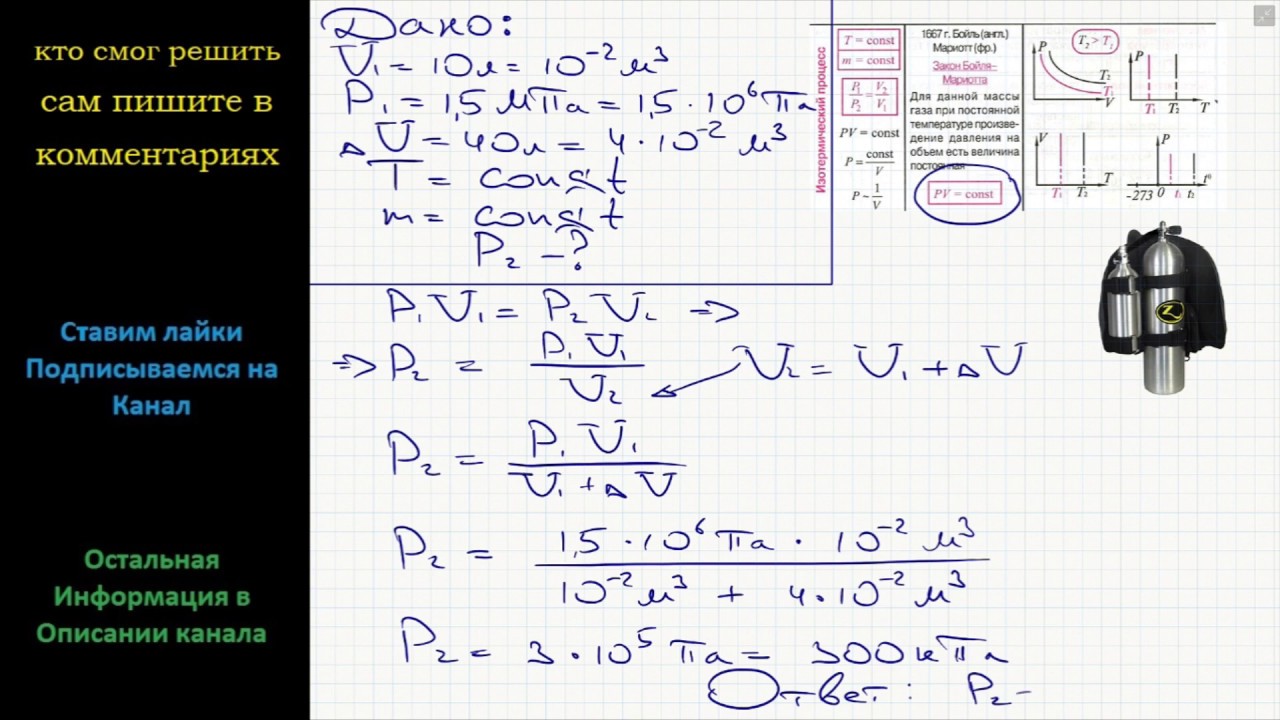 кто смог решить
сам пишите в
комментариях
Ставим лайки
Подписываемся на
Канал
Остальная
Информация в
Описании канала
Дано:
V₁ = 10л = 10⁻² м³
P₁ = 1,5 МПа = 1,5 · 10⁶ Па
ΔV = 40л = 4 · 10⁻² м³
T = const
m = const
P₂ – ?
Изотермический процесс
T = const
m = const
P₁/P₂ = V₂/V₁
PV = const
P = const/V
P ~ 1/V
1667 г. Бойль (англ.)
Мариотт (фр.)
Закон Бойля–
Мариотта
Для данной массы
газа при постоянной
температуре произве-
дение давления на
объем есть величина
постоянная
PV = const
T₂ > T₁
P
T₂
T₁
V
P
T₁ T₂ T
V
T₁ T₂ T
P
-273 0 t₁ t₂ t°
P₁V₁ = P₂V₂ =>
=> P₂ = P₁V₁/V₂
V₂ = V₁ + ΔV
P₂ = P₁V₁/V₁ + ΔV
P₂ = 1,5 · 10⁶ Па · 10⁻² м³/10⁻² м³ + 4 · 10⁻² м³
P₂ = 3 · 10⁵ Па = 300 кПа
Ответ: P₂ -